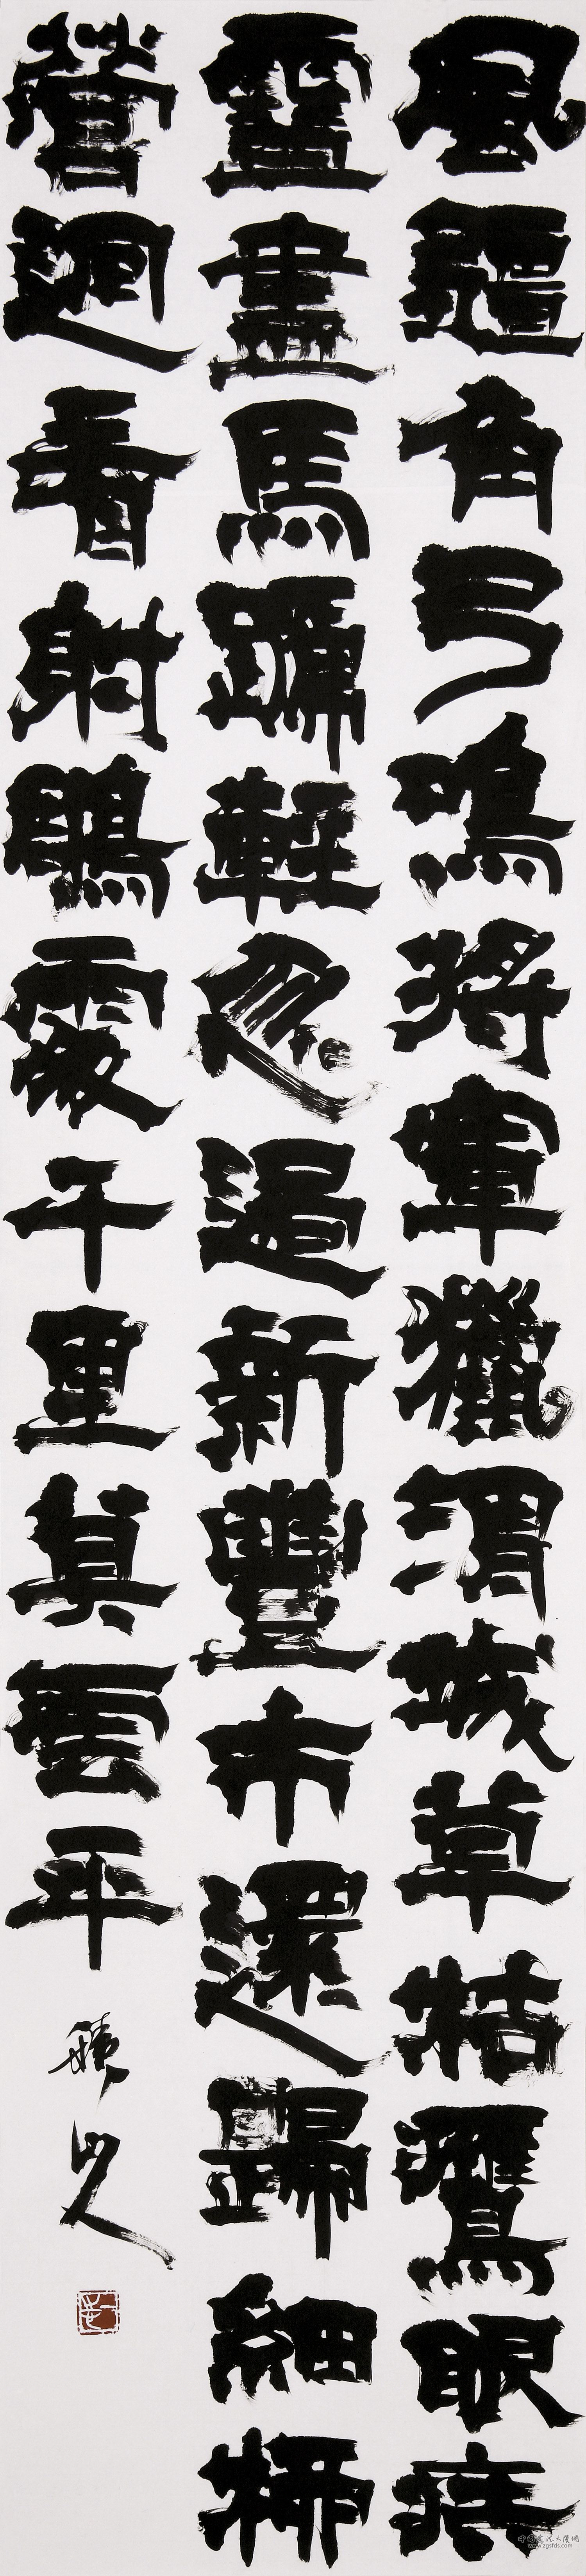 風角弓鳴將軍獵渭城草枯鷹眼疾
雪盡馬蹄輕忽過新豐市還歸細柳
營迴看射鵰處千里莫雲平
www.zgsfds.com